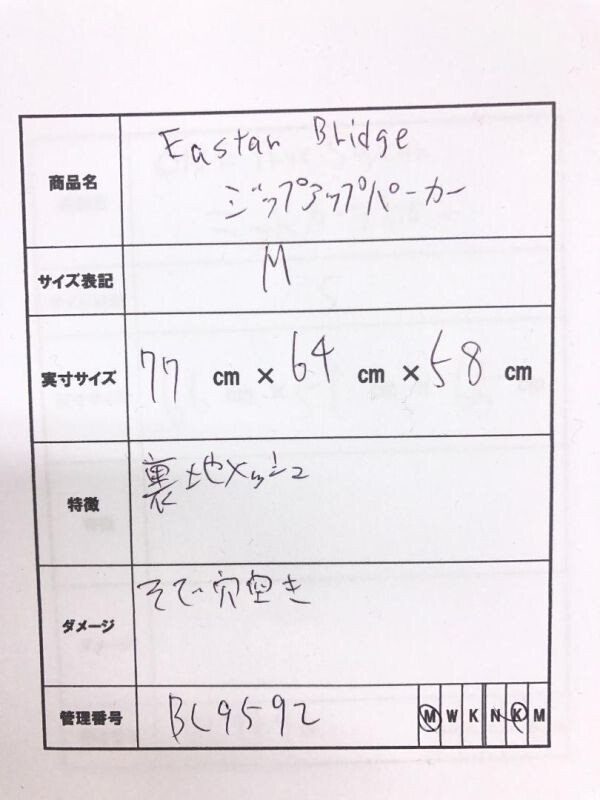 商品名 Eastan Bridge
ジップアップパーカー
サイズ表記 M
実寸サイズ 77 cm × 64 cm × 58 cm
特徴 裏地メッシュ
ダメージ そで穴空き
管理番号 BL9592 M W K N K M